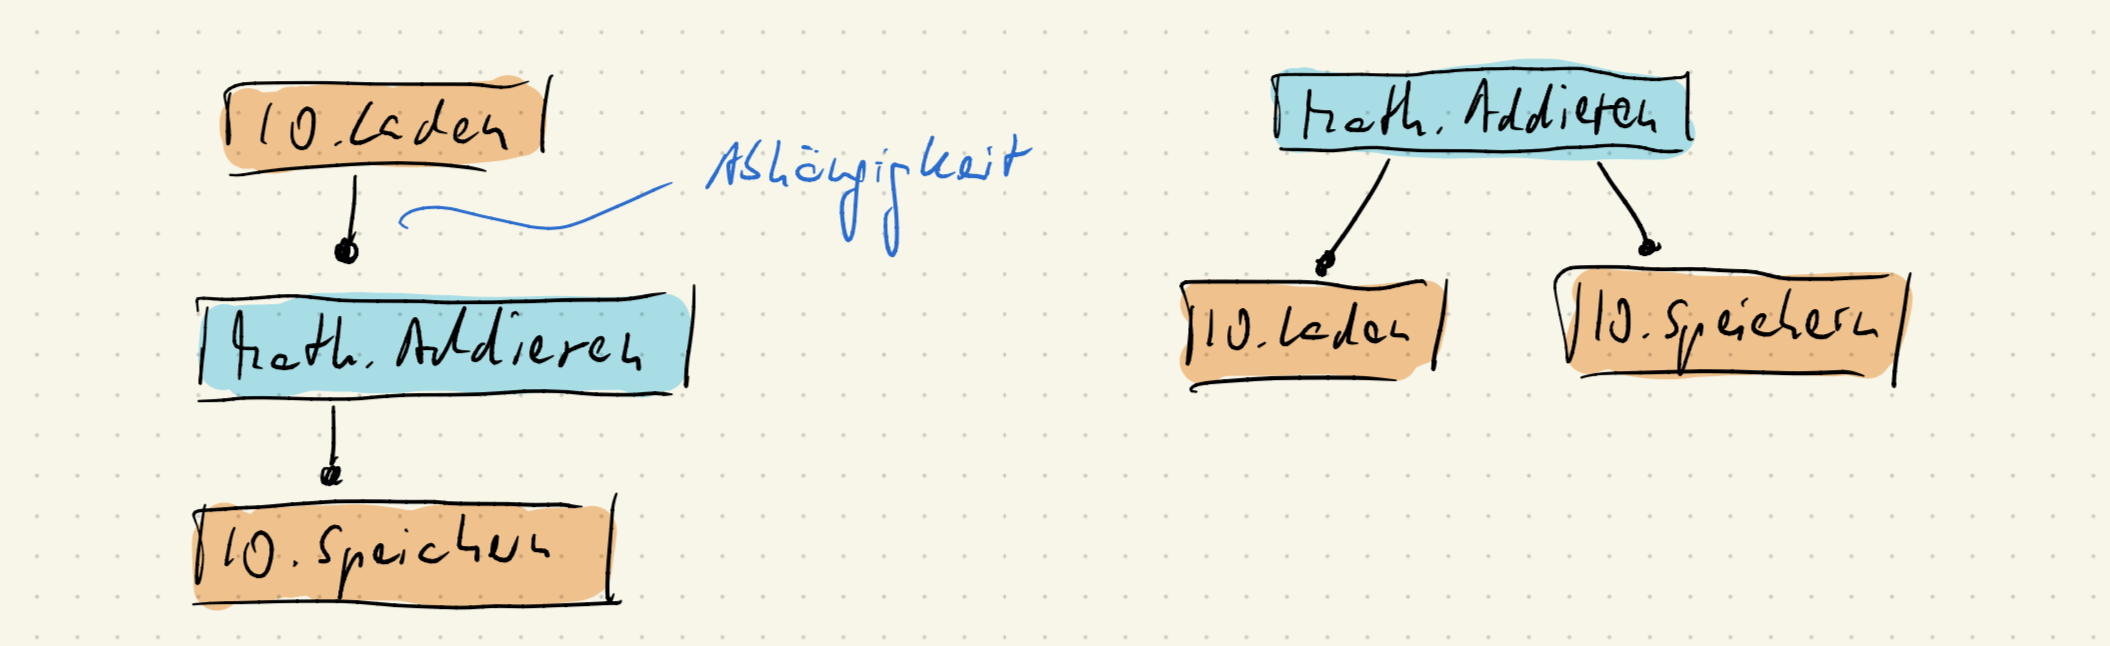 IO.Laden
Abhängigkeit
Math.Addieren
IO.Speichern
Math.Addieren
IO.Laden
IO.Speichern